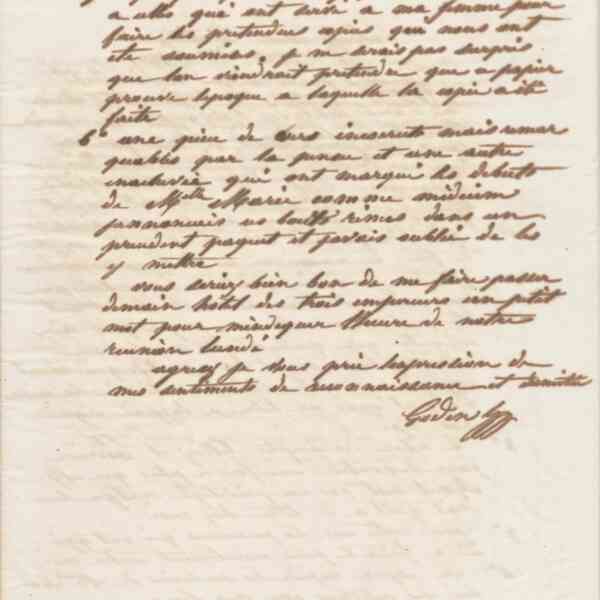 a celles qui ont servi a ma femme pour
faire les pretendues copies qui nous ont
ete soumises. je ne serais pas surpris
que lon viendrait pretendre que ce papier
prouve lepoque a laquelle la copie a ete
faite
6° une piece de vers incorrects mais remar
quables par la pensee et une autre
inachevée qui ont marqué les debuts
de Melle Marie comme médium
jannoncais ces bouts rimés dans un
precedent paquet et javais oublié de les
y mettre
vous seriez bien bon de me faire passer
demain hôtel des trois empereurs un petit
mot pour mindiquer lheure de notre
reunion lundi
agreez je vous prie lexpression de
mes sentiments de reconnaissance et damitié
Godin